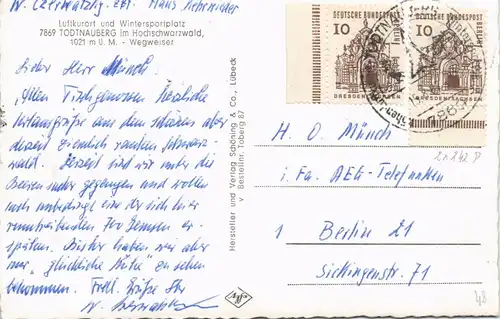 W. Czerwatzky, zzt. Hans Kehrwieder
Luftkurort und Wintersportplatz
7869 TODTNAUBERG im Hochschwarzwald,
1021 m ü. M. - Wegweiser
Lieber Herr Münch.
Allen Tischgenossen herzliche
Urlaubsgrüße aus dem schönen aber
derzeit ziemlich rauhen Schwarz-
wald. Derzeit sind wir unter die
Beerensucher gegangen und wollen
noch unbedingt eine der sich hier
rumtreibenden 700 Gemsen er-
spähen. Bisher haben wir aber
nur "glückliche Kühe" zu sehen
bekommen. Frdl. Grüße Ihr
W. Czerwatzky
Hersteller und Verlag Schöning & Co., Lübeck
v Bestellnr. Toberg 87
Agfa
DEUTSCHE BUNDESPOST BERLIN
10
DRESDEN/SACHSEN
DEUTSCHE BUNDESPOST BERLIN
10
DRESDEN/SACHSEN
2x242 P
H. O. Münch
i. Fa. AEG-Telefunken
1 Berlin 21
Sickingenstr. 71
48